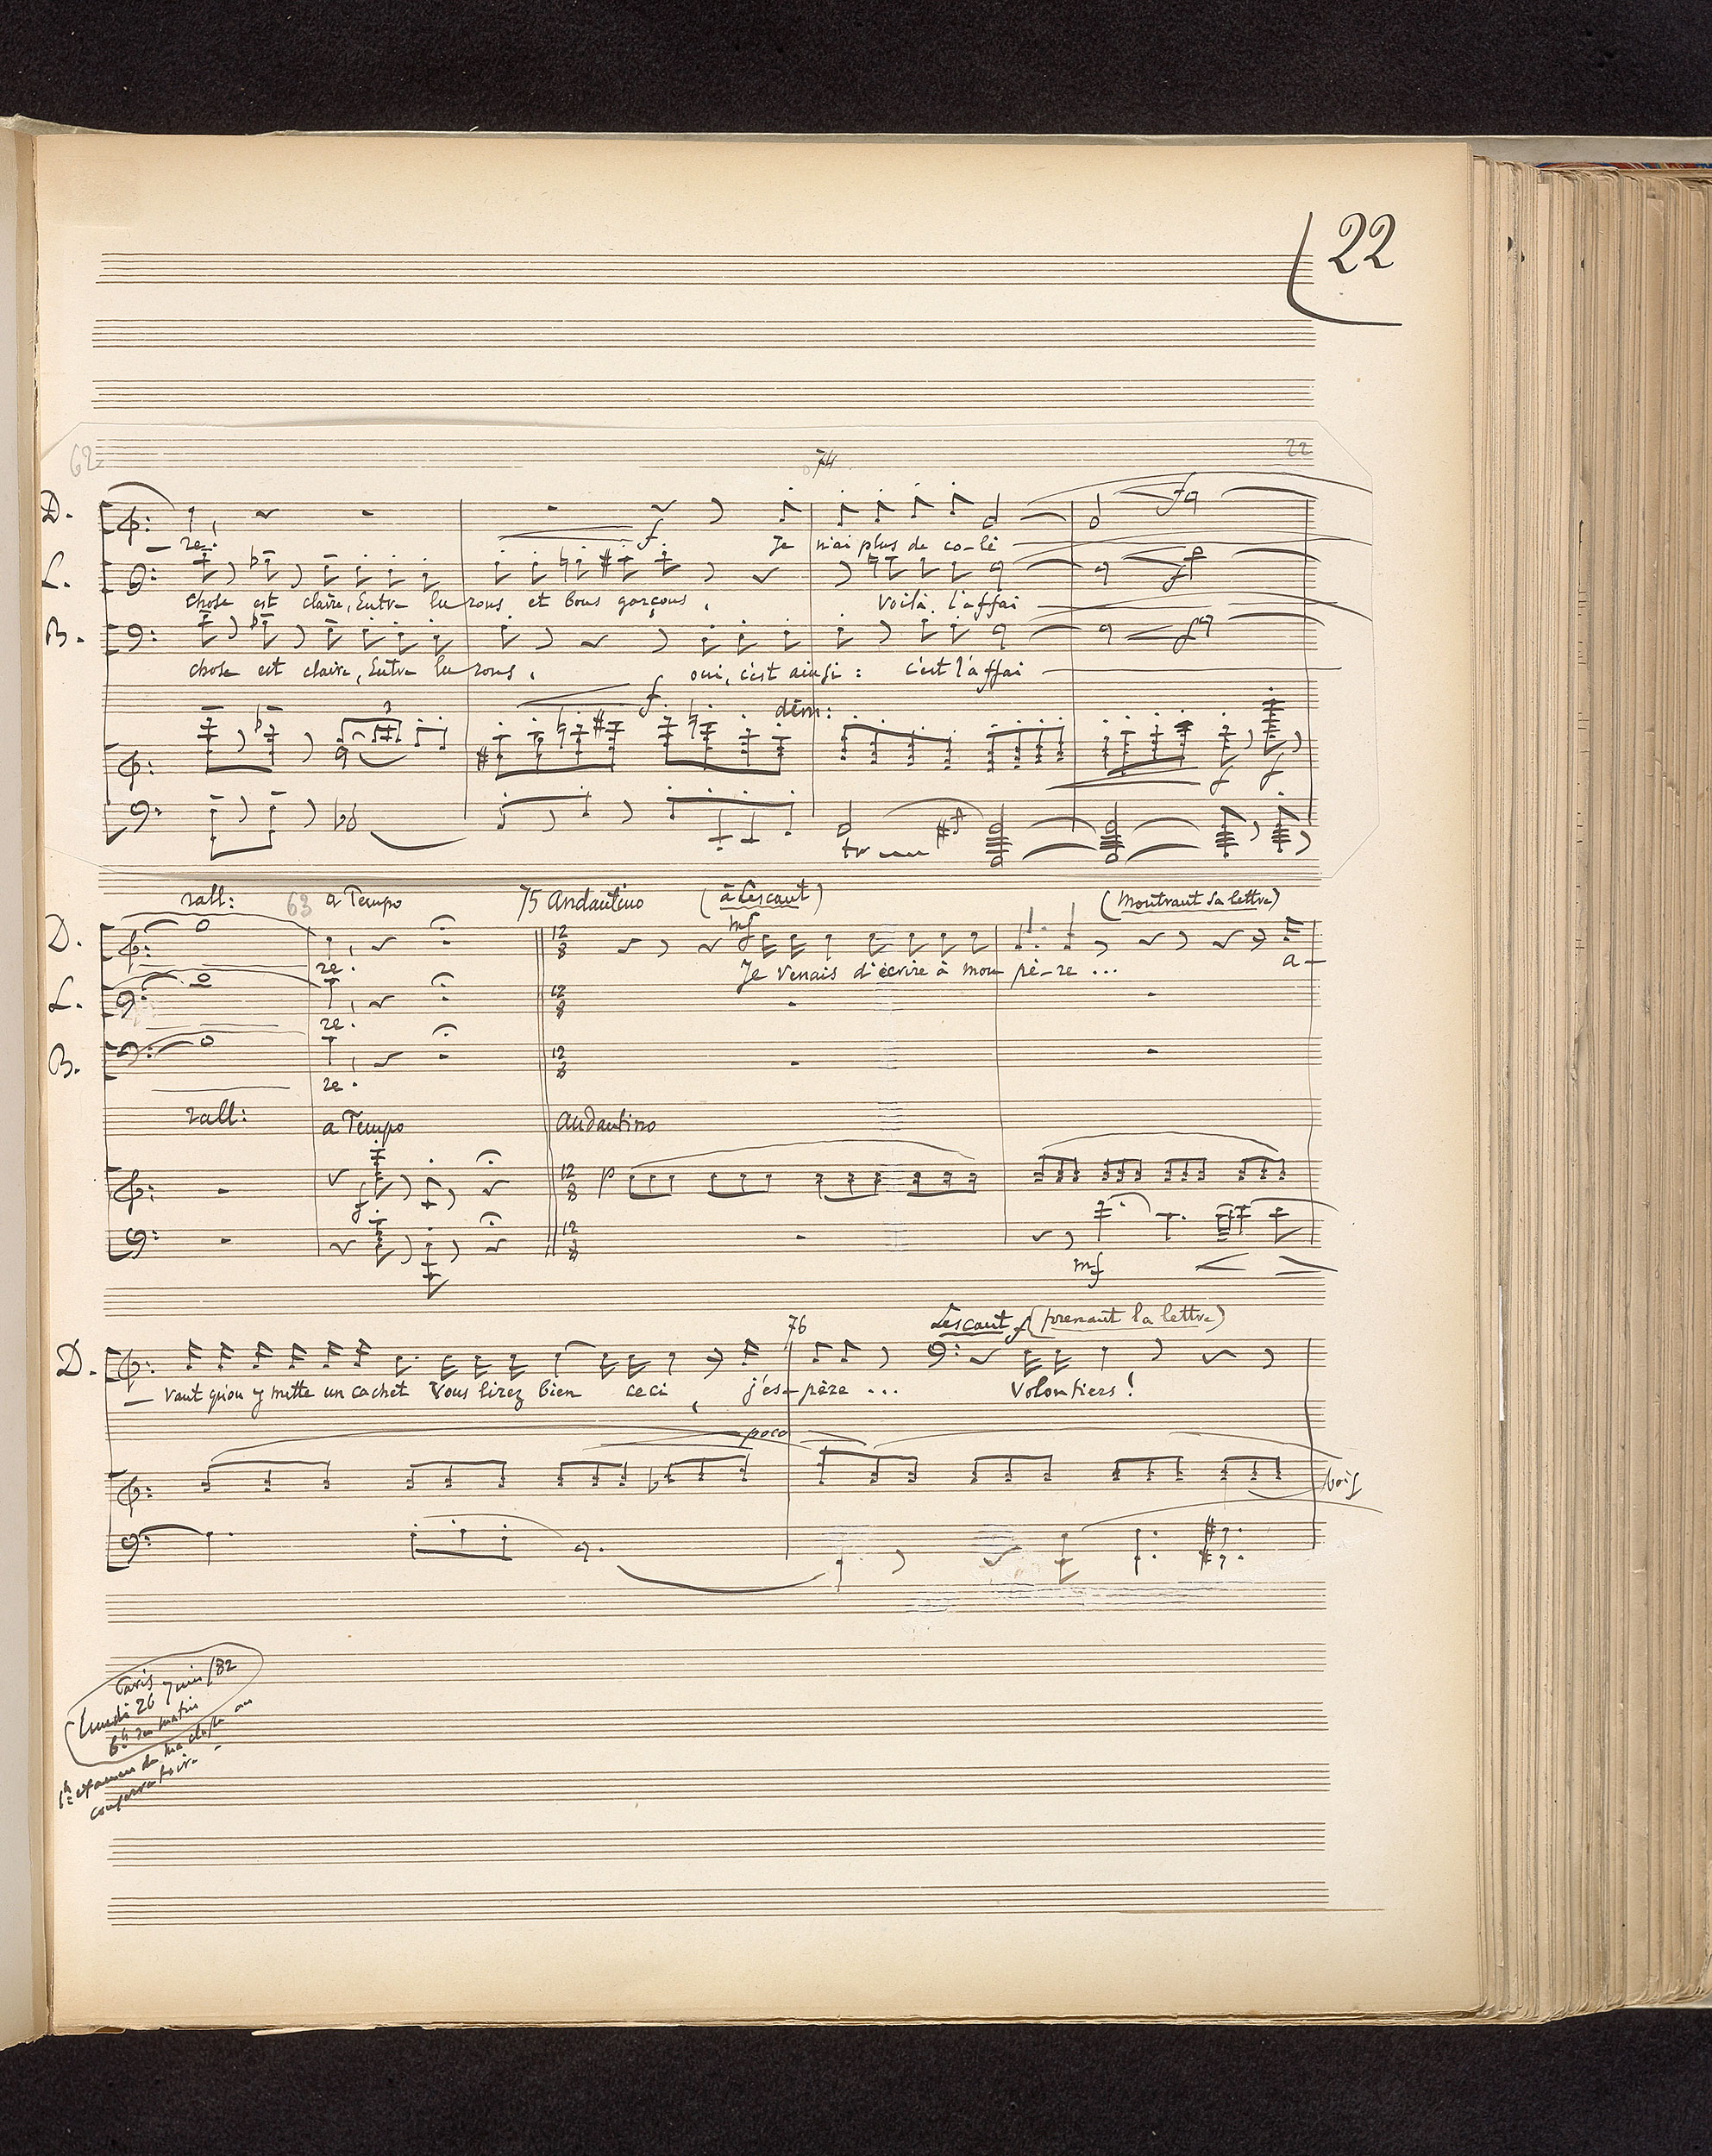 22
62
74
22
D.
f
f
— re! Je n'ai plus de co-lè
L.
f
chose est claire, Entre lu-rons et bons garçons, Voilà l'affai
B.
f
chose est claire, Entre lurons. oui, c'est ainsi : c'est l'affai
f
dim:
3
f f
tr
rall: 63 a Tempo 75 Andantino (à Lescaut) (montrant sa lettre)
D. 12 8 mf
re. Je venais d'écrire à mon pè-re ... a-
L. 12 8
re.
B. 12 8
re.
rall: a Tempo Andantino
f 12 8 p
12 8
mf
76 Lescaut f (prenant la lettre)
D.
— vant qu'on y mette un cachet Vous lirez bien ceci, j'es-père ... Volontiers!
poco
bois
Paris
Lundi 26 juin/82
6h du matin
examen de ma classe au
conservatoire